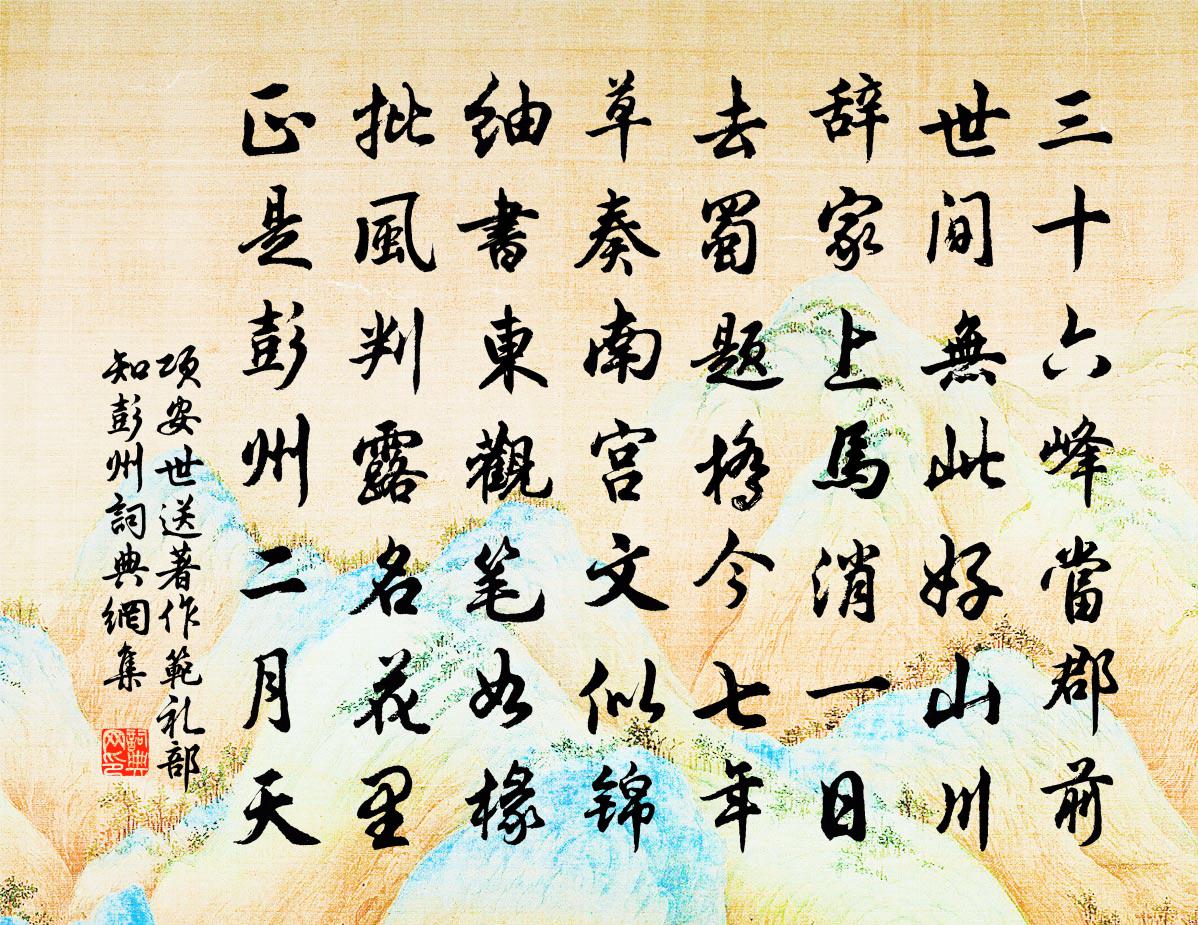 三十六峰當郡前
世间無此好山川
辞家上馬消一日
去蜀題橋今七年
草奏南宫文似锦
紬書東觀笔如椽
批風判露名花里
正是彭州二月天
项安世送著作範礼部
知彭州詞典網集
詞典網印